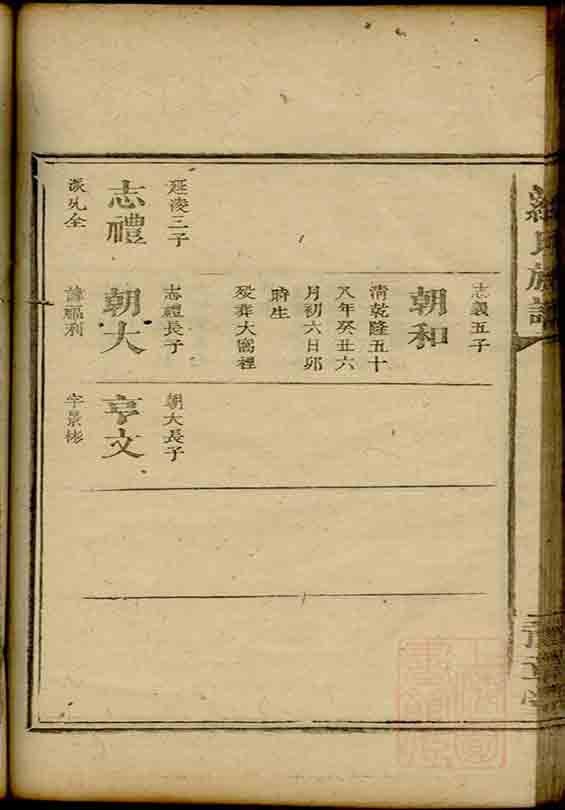 羅氏族譜
志義五子
朝和
清乾隆五十
八年癸丑六
月初六日卯
時生
歿葬大窩裡
廷凌三子
志禮
派允全
志禮長子
朝大
諱福利
朝大長子
亨文
字景彬
上海圖
書館藏